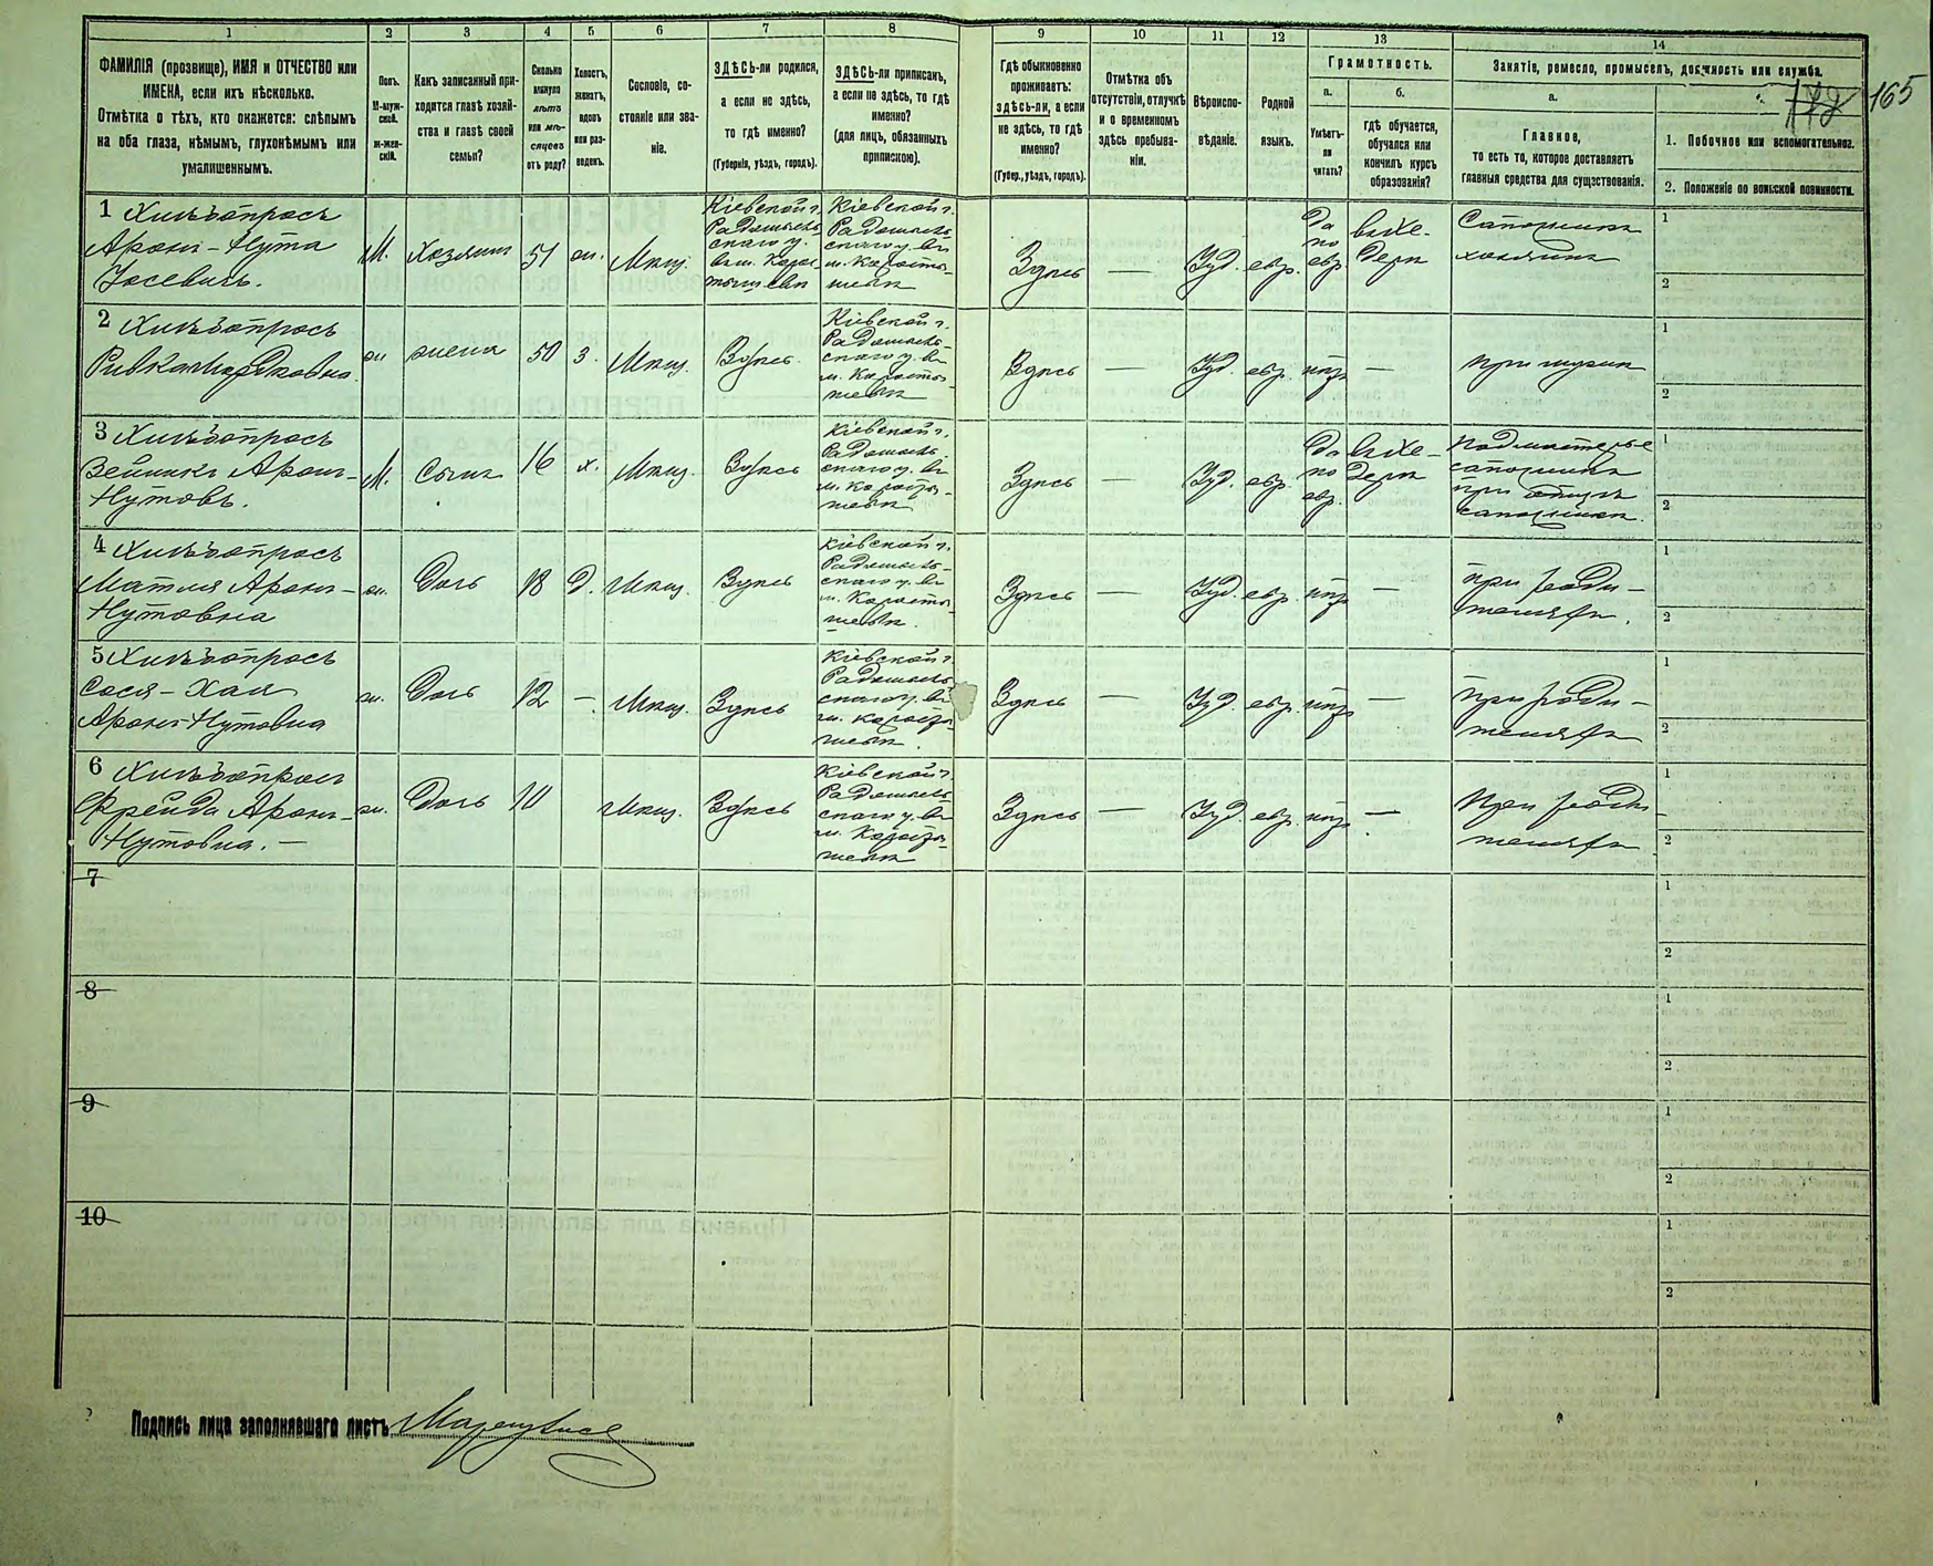 1 2 3 4 5 6 7 8 9 10 11 12 13 14
ФАМИЛІЯ (прозвище), ИМЯ и ОТЧЕСТВО или
ИМЕНА, если ихъ нѣсколько.
Отмѣтка о тѣхъ, кто окажется: слѣпымъ
на оба глаза, нѣмымъ, глухонѣмымъ или
умалишеннымъ.
Полъ.
М-муж-
ской.
ж-жен-
скій.
Какъ записанный при-
ходится главѣ хозяй-
ства и главѣ своей
семьи?
Сколько
минуло
лѣтъ
или мѣ-
сяцевъ
отъ роду?
Холостъ,
женатъ,
вдовъ
или раз-
веденъ.
Сословіе, со-
стояніе или зва-
ніе.
ЗДѢСЬ-ли родился,
а если не здѣсь,
то гдѣ именно?
(Губернія, уѣздъ, городъ).
ЗДѢСЬ-ли приписанъ,
а если не здѣсь, то гдѣ
именно?
(для лицъ, обязанныхъ
припискою).
Гдѣ обыкновенно
проживаетъ:
здѣсь-ли, а если
не здѣсь, то гдѣ
именно?
(Губер., уѣздъ, городъ).
Отмѣтка объ
отсутствіи, отлучкѣ
и о временномъ
здѣсь пребыва-
ніи.
Вѣроиспо-
вѣданіе.
Родной
языкъ.
Грамотность.
а.
Умѣетъ-
ли
читать?
б.
Гдѣ обучается,
обучался или
кончилъ курсъ
образованія?
Занятіе, ремесло, промыселъ, должность или служба.
а.
Главное,
то есть то, которое доставляетъ
главныя средства для существованія.
1. Побочное или вспомогательное.
2. Положеніе по воинской повинности.
165
1
Аронъ-Нута
Іосевичъ.
М.
Хозяинъ
51
ж.
Мѣщ.
Кіевской г.
Радомысль-
скаго у.
въ м. Корос-
тышевѣ
Кіевской г.
Радомысль-
скаго у. въ
м. Коросты-
шевѣ
Здѣсь
—
Іуд.
евр.
Да
по
евр.
въ хе-
дерѣ
Сапожникъ
хозяинъ
1
2
2
Ривка Мордковна
ж
жена
50
з.
Мѣщ.
Здѣсь
Кіевской г.
Радомысль-
скаго у. въ
м. Коросты-
шевѣ
Здѣсь
—
Іуд.
евр.
нѣтъ
—
при мужѣ
1
2
3
Аронъ-
Нутовъ.
М.
Сынъ
16
х.
Мѣщ.
Здѣсь
Кіевской г.
Радомысль-
скаго у. въ
м. Коросты-
шевѣ
Здѣсь
—
Іуд.
евр.
Да
по
евр.
въ хе-
дерѣ
Подмастерье
сапожника
при отцѣ
сапожникѣ.
1
2
4
Матля Аронъ-
Нутовна
ж.
Дочь
18
Д.
Мѣщ.
Здѣсь
Кіевской г.
Радомысль-
скаго у. въ
м. Коросты-
шевѣ.
Здѣсь
—
Іуд.
евр.
нѣтъ
—
при роди-
теляхъ.
1
2
5
Сося-Хая
Аронъ-Нутовна
ж.
Дочь
12
—
Мѣщ.
Здѣсь
Кіевской г.
Радомысль-
скаго у. въ
м. Коросты-
шевѣ.
Здѣсь
—
Іуд.
евр.
нѣтъ
—
при роди-
теляхъ
1
2
6
Фрейда Аронъ-
Нутовна. —
ж.
Дочь
10
Мѣщ.
Здѣсь
Кіевской г.
Радомысль-
скаго у. въ
м. Коросты-
шевѣ
Здѣсь
—
Іуд.
евр.
нѣтъ
—
При роди-
теляхъ
1
2
7
1
2
8
1
2
9
1
2
10
1
2
Подпись лица заполнявшаго листъ